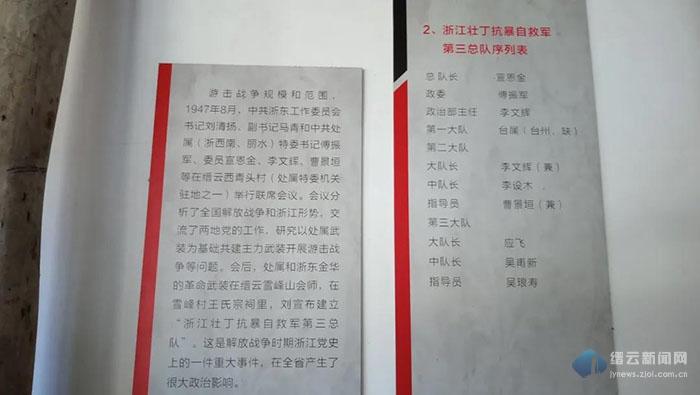 游击战争规模和范围，
1947年8月，中共浙东工作委员会
书记刘清扬、副书记马青和中共处
属（浙西南、丽水）特委书记傅振
军、委员宣恩金、李文辉、曹景垣
等在缙云西青头村（处属特委机关
驻地之一）举行联席会议。会议分
析了全国解放战争和浙江形势，交
流了两地党的工作，研究以处属武
装为基础共建主力武装开展游击战
争等问题。会后，处属和浙东金华
的革命武装在缙云雪峰山会师，在
雪峰村王氏宗祠里，刘宣布建立
“浙江壮丁抗暴自救军第三总
队”。这是解放战争时期浙江党史
上的一件重大事件，在全省产生了
很大政治影响。
2、浙江壮丁抗暴自救军
第三总队序列表
总队长 宣恩金
政委 傅振军
政治部主任 李文辉
第一大队 台属（台州、缺）
第二大队
大队长 李文辉（兼）
中队长 李设木
指导员 曹景垣（兼）
第三大队
大队长 应飞
中队长 吴甫新
指导员 吴琅寿
缙云新闻网
jynews.zjol.com.cn